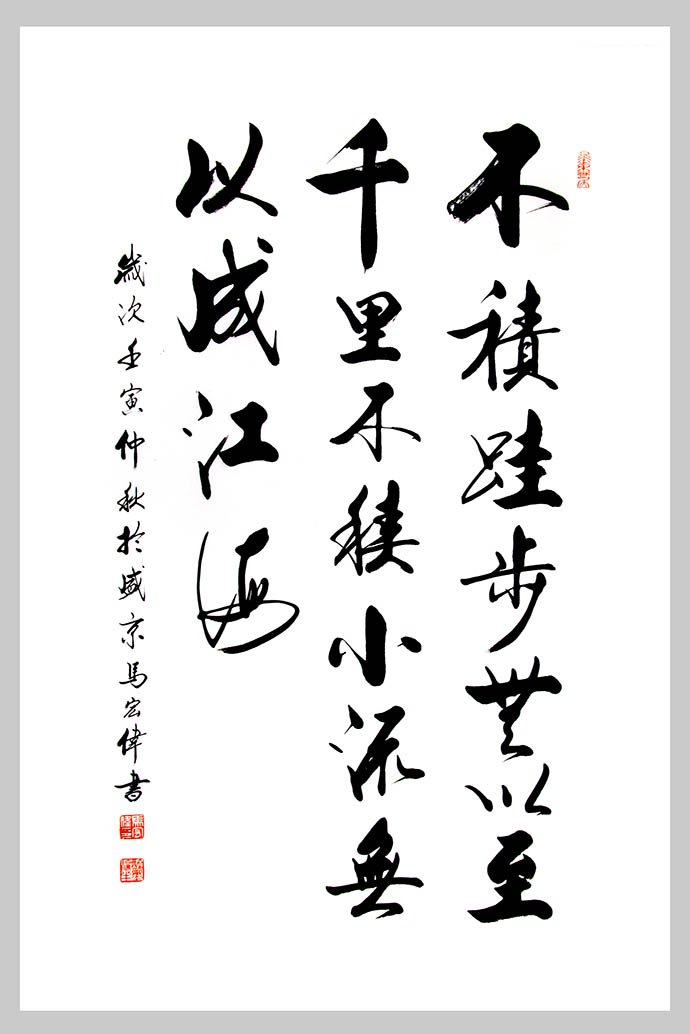 不積跬步無以至
千里不積小流無
以成江海
歲次壬寅仲秋於盛京馬宏偉書